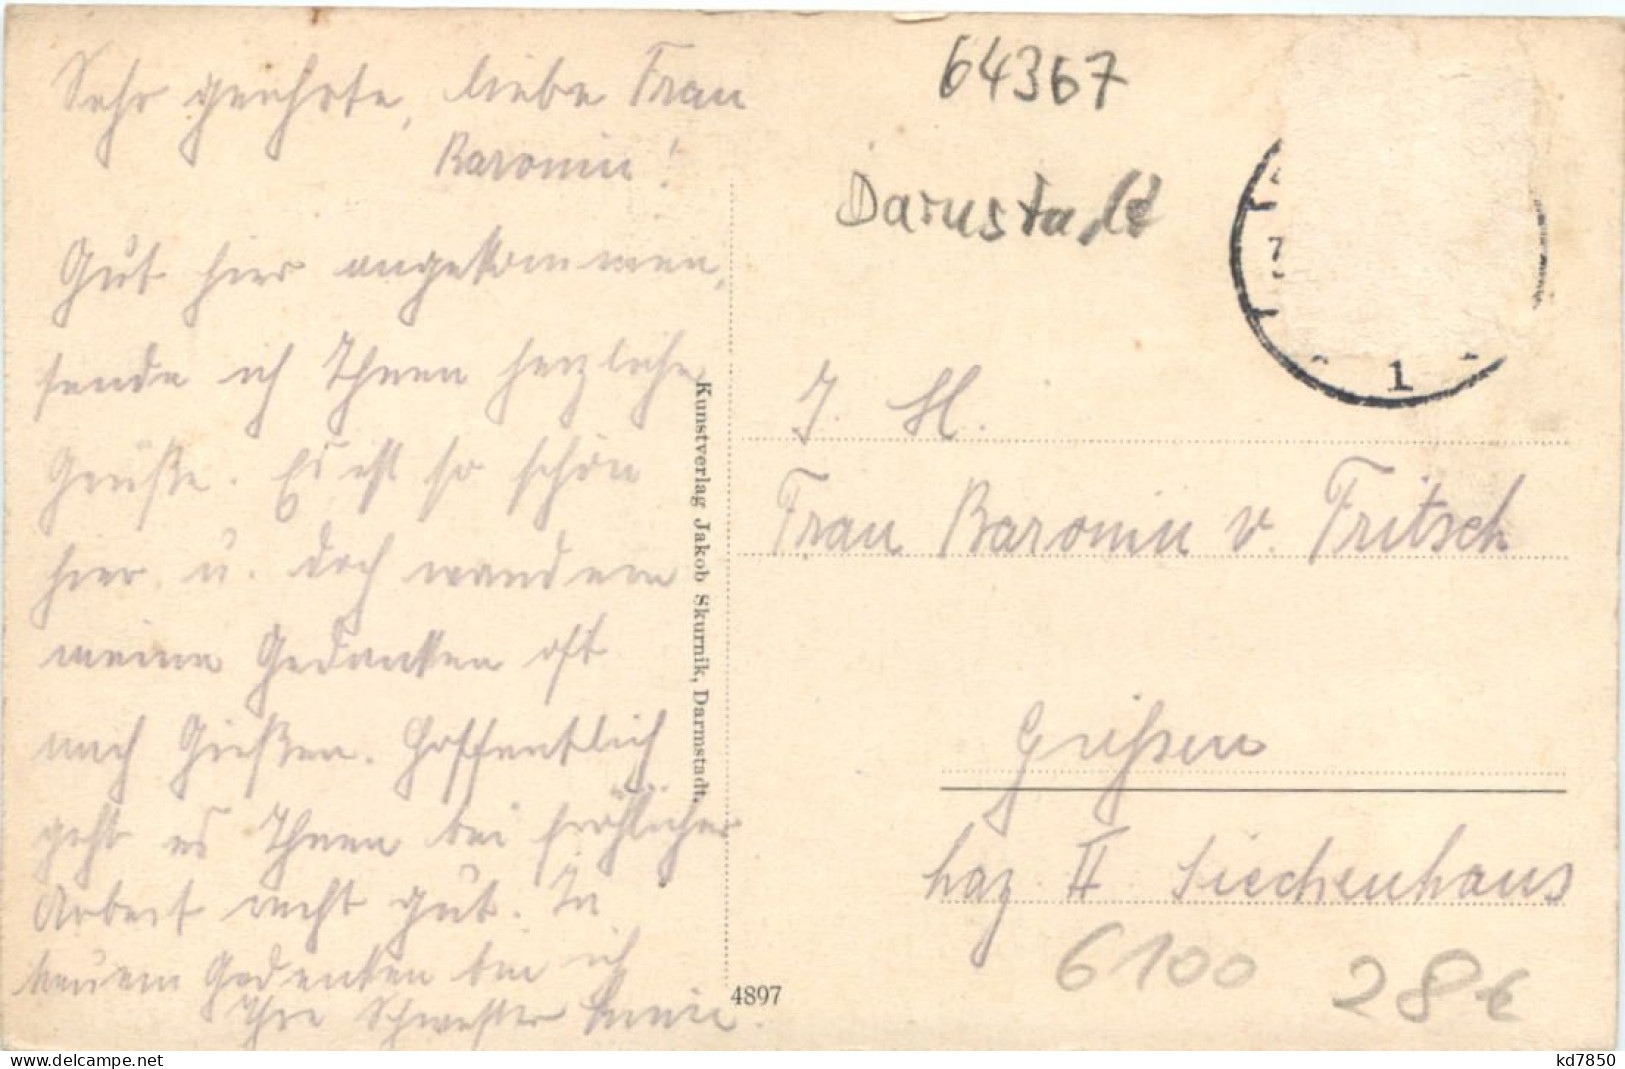 Sehr geehrte, liebe Frau
Baronin!
Gut hier angekommen,
sende ich Ihnen herzliche
Grüße. Es ist so schön
hier u. doch wandern
meine Gedanken oft
nach Gießen. Hoffentlich
geht es Ihnen bei fröhlicher
Arbeit recht gut. In
treuem Gedenken bin ich
Ihre Schwester
Kunstverlag Jakob Skurnik, Darmstadt.
4897
64367
Darmstadt
7
1
I. H.
Frau Baronin v. Fritsch
Giessen
Laz. II Siechenhaus
6100
28€
www.delcampe.net
kd7850